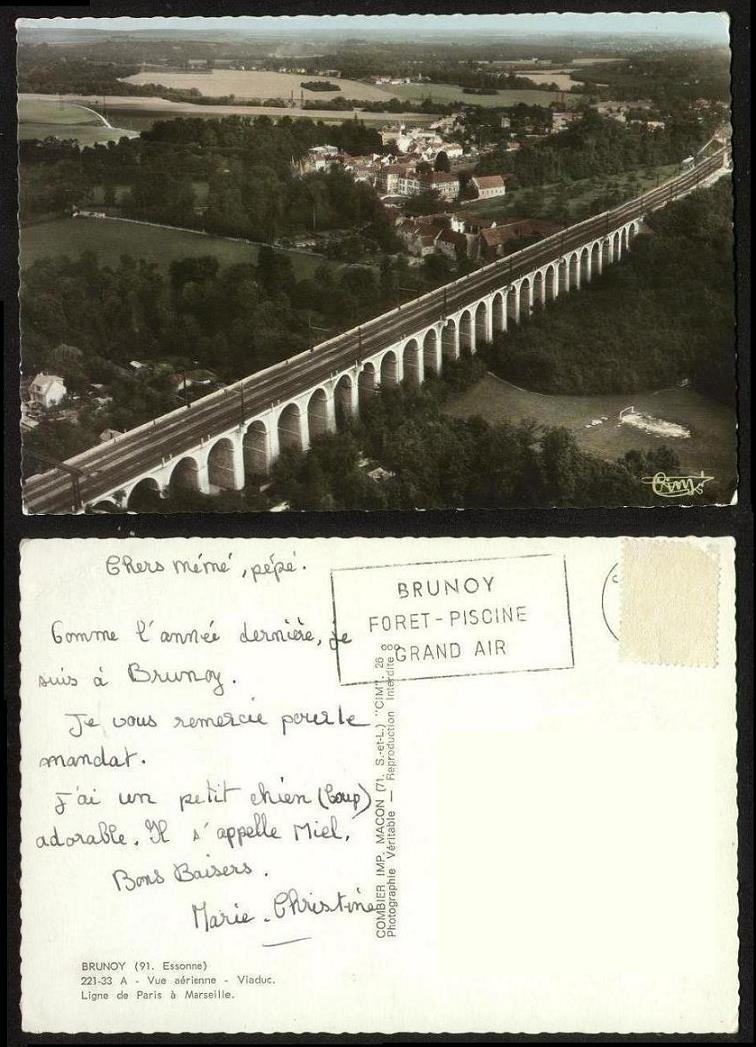 Cim
Chers mémé, pépé.
Comme l'année dernière, je
suis à Brunoy.
Je vous remercie pour le
mandat.
J'ai un petit chien (loup)
adorable. Il s'appelle Miel.
Bons Baisers.
Marie-Christine
BRUNOY
FORET-PISCINE
GRAND AIR
COMBIER IMP. MACON (71. S.-et-L.) "CIM". 26 8
Photographie Véritable — Reproduction Interdite
BRUNOY (91. Essonne)
221-33 A - Vue aérienne - Viaduc.
Ligne de Paris à Marseille.